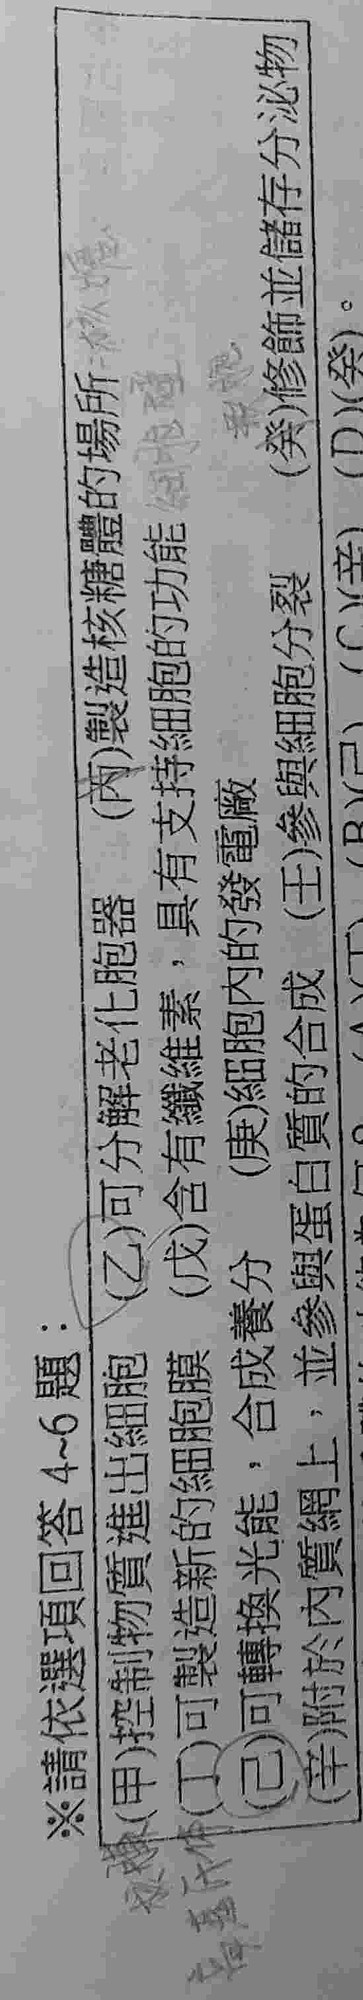 ※請依選項回答 4~6 題：
(甲)控制物質進出細胞 (乙)可分解老化胞器 (丙)製造核糖體的場所
(丁)可製造新的細胞膜 (戊)含有纖維素，具有支持細胞的功能 細胞壁
(己)可轉換光能，合成養分 (庚)細胞內的發電廠
(辛)附於內質網上，並參與蛋白質的合成 (壬)參與細胞分裂 (癸)修飾並儲存分泌物
(A)(丁) (B)(己) (C)(辛) (D)(癸)。